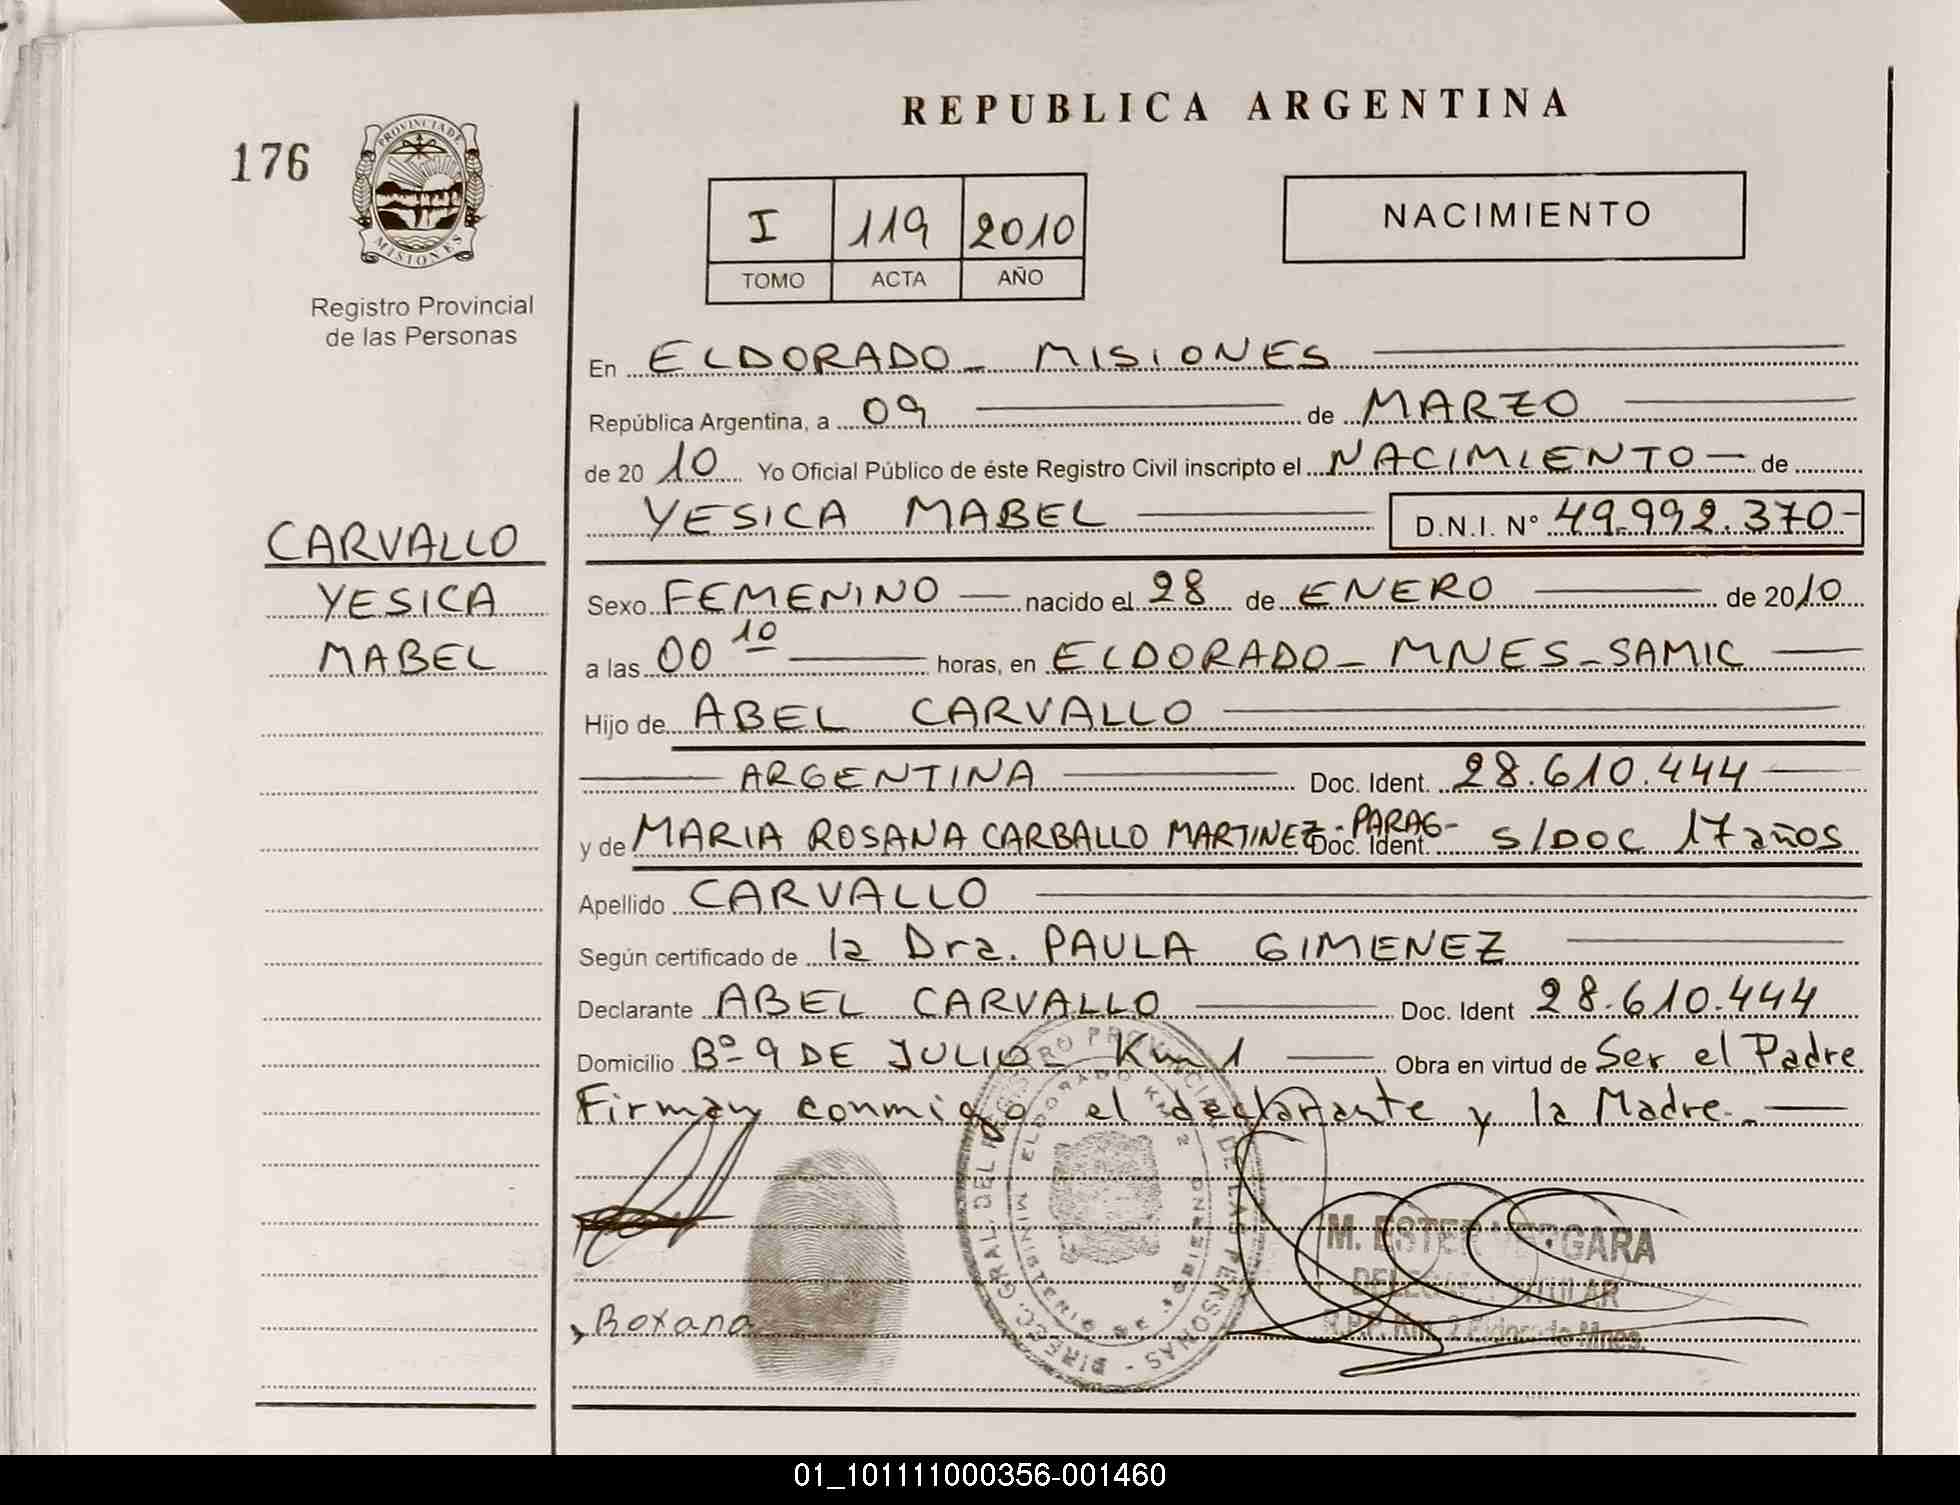 REPUBLICA ARGENTINA
176
PROVINCIA DE
MISIONES
Registro Provincial
de las Personas
I 119 2010
TOMO ACTA AÑO
NACIMIENTO
En ELDORADO - MISIONES
República Argentina, a 09 de MARZO
de 20 10 Yo Oficial Público de éste Registro Civil inscripto el NACIMIENTO de
YESICA MABEL D.N.I. Nº 49.992.370-
CARVALLO
YESICA
MABEL
Sexo FEMENINO nacido el 28 de ENERO de 2010
a las 00 10 horas, en ELDORADO - MNES - SAMIC
Hijo de ABEL CARVALLO
ARGENTINA Doc. Ident. 28.610.444
y de MARIA ROSANA CARBALLO MARTINEZ - PARAG- Doc. Ident. S/DOC 17 años
Apellido CARVALLO
Según certificado de la Dra. PAULA GIMENEZ
Declarante ABEL CARVALLO Doc. Ident 28.610.444
Domicilio Bº 9 DE JULIO - Km 1 Obra en virtud de Ser el Padre
Firman conmigo el declarante y la Madre.-
DIREC. GRAL. DEL REGISTRO PROVINCIAL DE LAS PERSONAS
ELDORADO KM 2
M. ESTER VERGARA
DELEGADA TITULAR
R.P.P. Km. 2 Eldorado Mnes.
Roxana
01_101111000356-001460